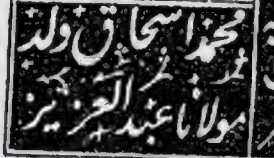 محمد اسحاق ولد
مولانا عبد العزیز